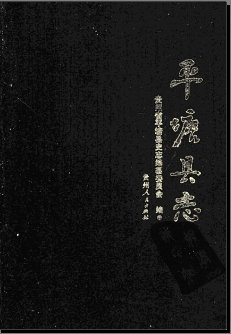 平塘县志
贵州省平塘县史志编纂委员会 编
贵州人民出版社